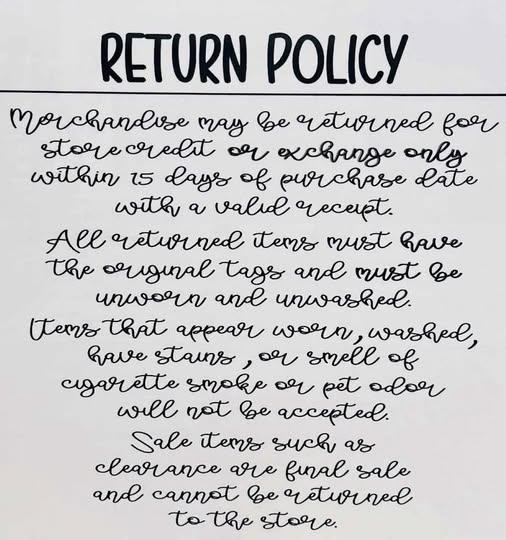 RETURN POLICY
Merchandise may be returned for
store credit or exchange only
within 15 days of purchase date
with a valid receipt.
All returned items must have
the original tags and must be
unworn and unwashed.
Items that appear worn, washed,
have stains, or smell of
cigarette smoke or pet odor
will not be accepted.
Sale items such as
clearance are final sale
and cannot be returned
to the store.